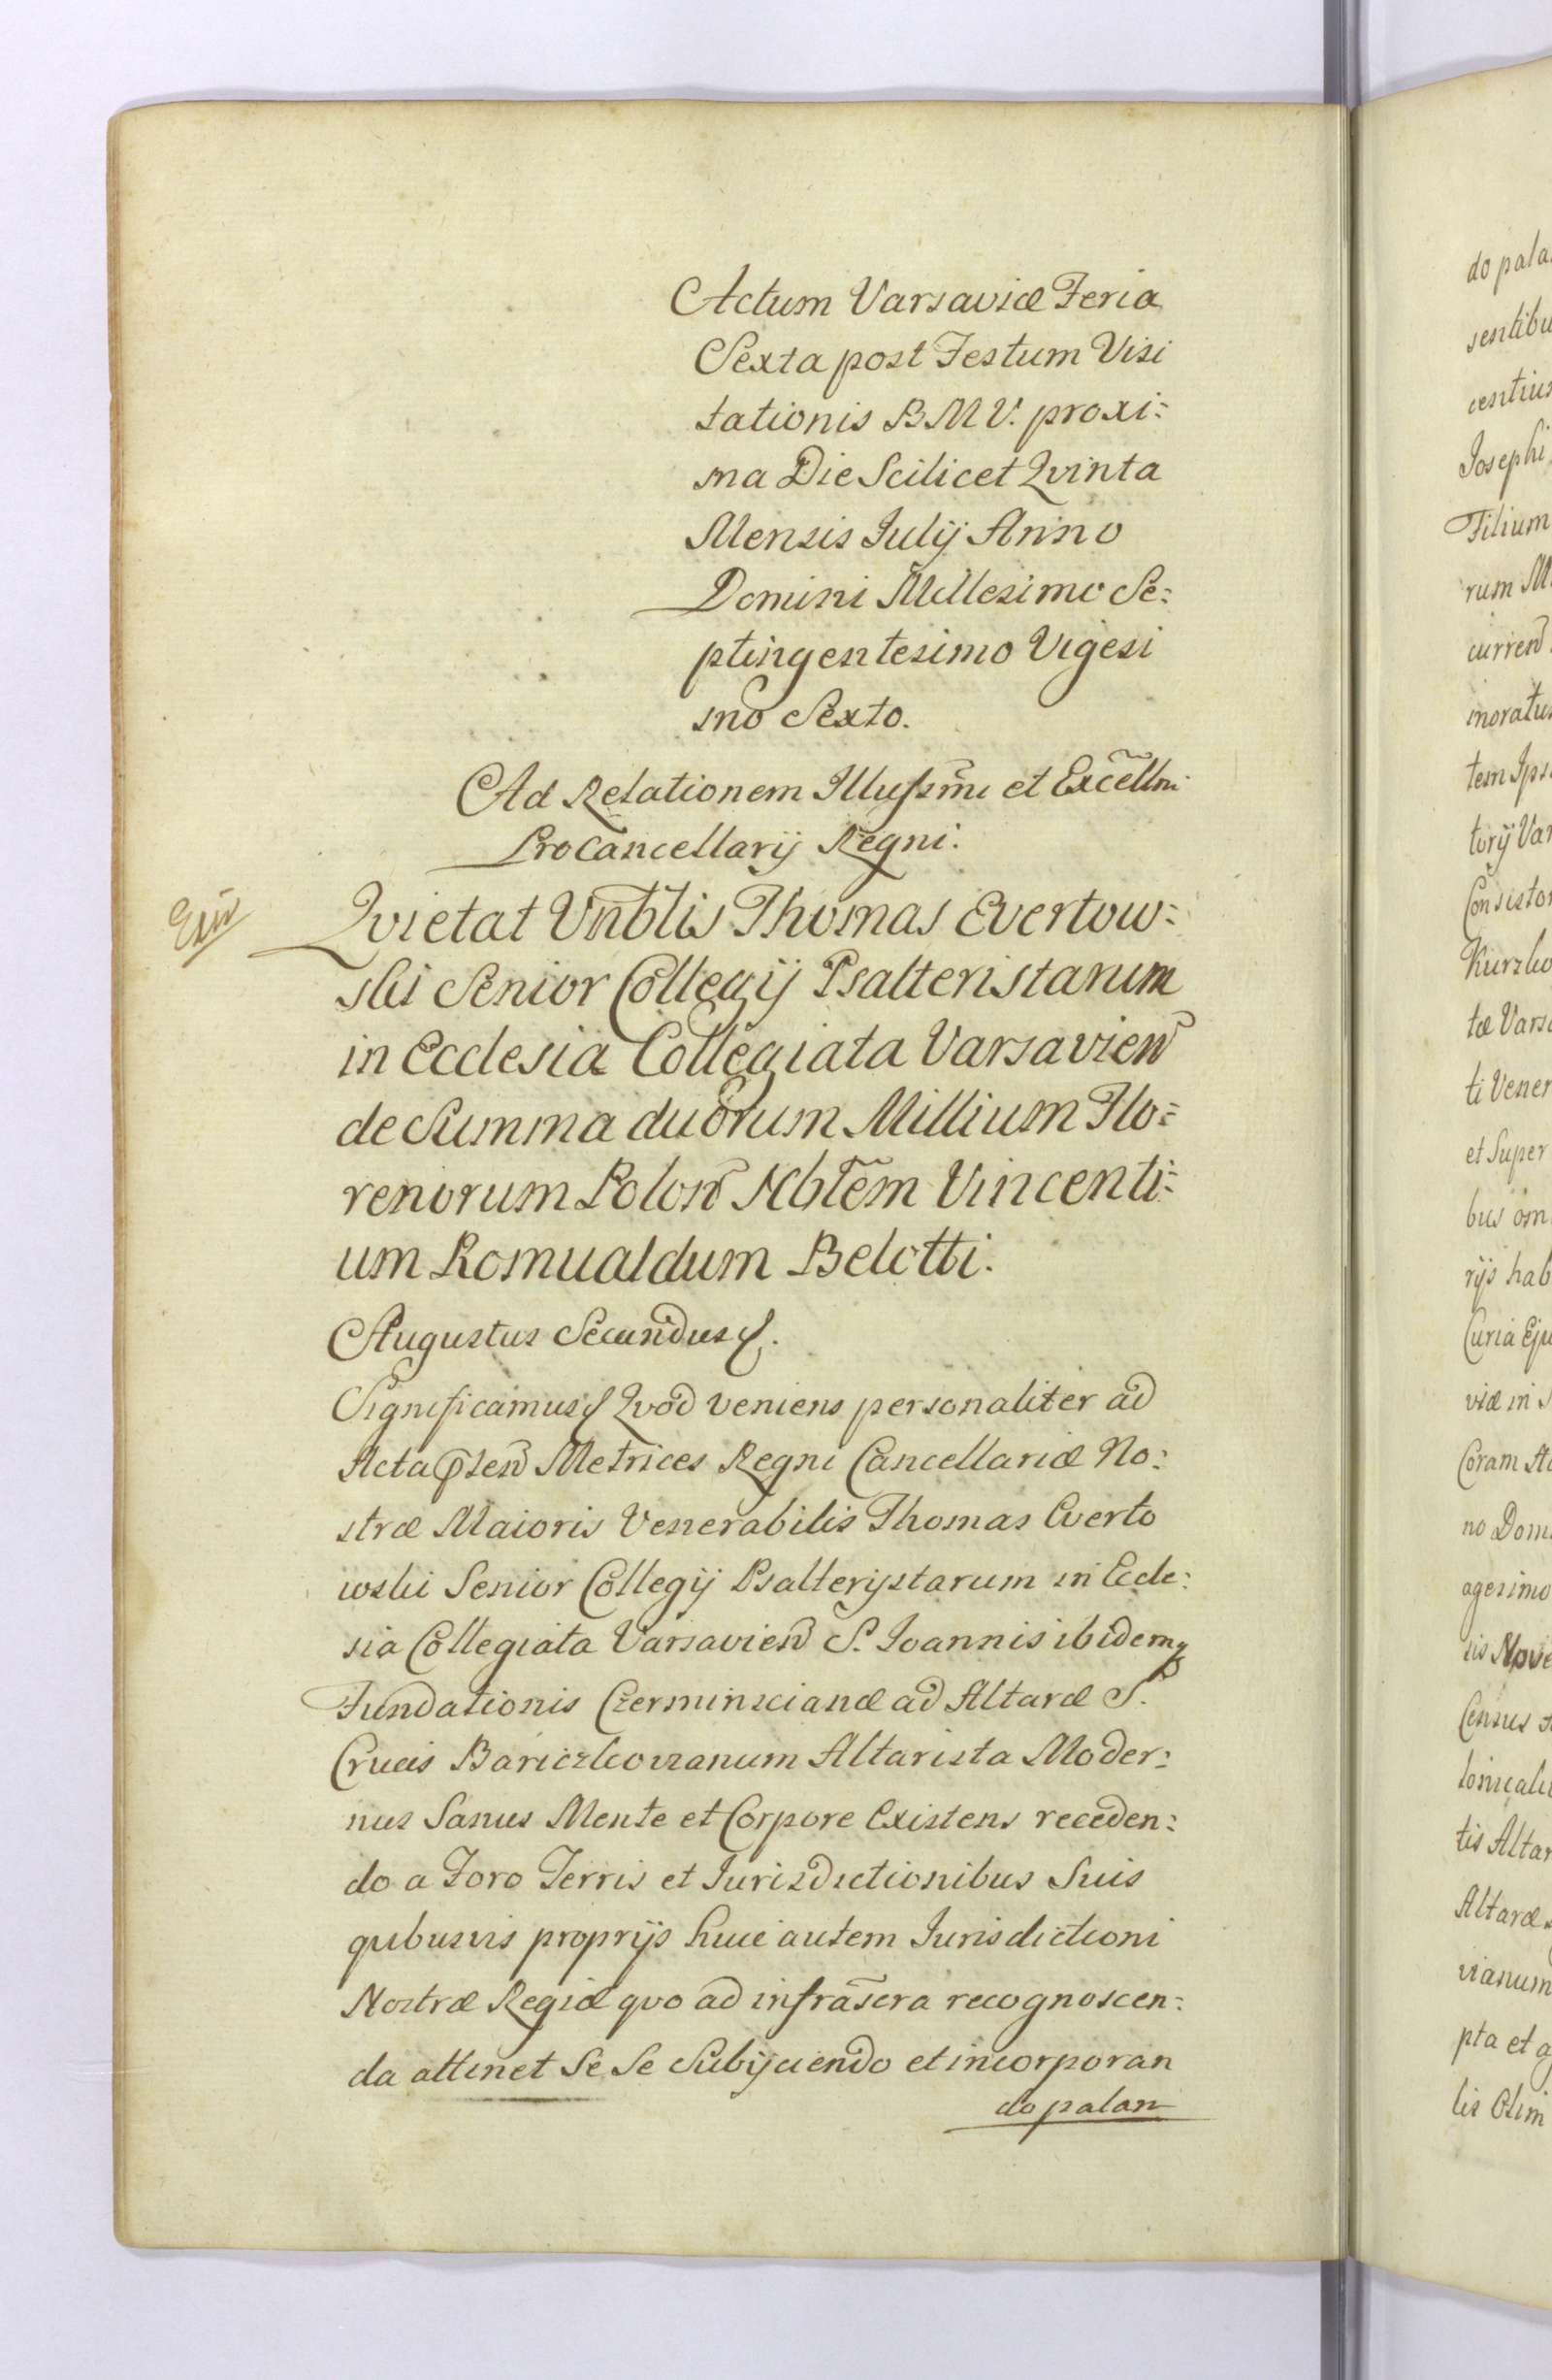 Actum Varsaviæ Feria
Sexta post Festum Visi
tationis B M V. proxi=
ma Die Scilicet Qvinta
Mensis Julij Anno
Domini Millesimo Se=
ptingentesimo Vigesi
mo Sexto.
Ad Relationem Illussm̃i et Excellm̃i
ProCancellarij Regni.
Qvietat Vnblis Thomas Evertow=
ski Senior Collegij Psalteristarum
in Ecclesia Collegiata Varsavien
de Summa duorum Millium Flo=
renorum Polon Nbtem Vincenti=
um Romualdum Belotti.
Augustus Secundus
Significamus Qvod veniens personaliter ad
Acta pnten Metrices Regni Cancellariæ No=
stræ Maioris Venerabilis Thomas Everto
wski Senior Collegij Psalterystarum in Eccle=
sia Collegiata Varsavien S. Joannis ibidemq
Fundationis Czerminscianæ ad Altaræ S.
Crucis Bariczkovianum Altarista Moder=
nus Sanus Mente et Corpore Existens receden=
do a Foro Terris et Jurisdictionibus Suis
qvibusvis proprijs huic autem Jurisdictioni
Nostræ Regiæ qvo ad infrascra recognoscen=
da attinet Se Se Subijciendo et incorporan
do palan
do pala
sentibu
Josephi
Filium
rum M
curren
moratu
tem Ips
torij Var
Consistor
Kurzko
tæ Varsa
ti Vener
et Super
bus om
rijs hab
Curia Eju
viæ in S
Coram A
no Dom
agesimo
is Nove
Census
lonicali
tis Altar
Altaræ
vianum
pta et a
lis Olim